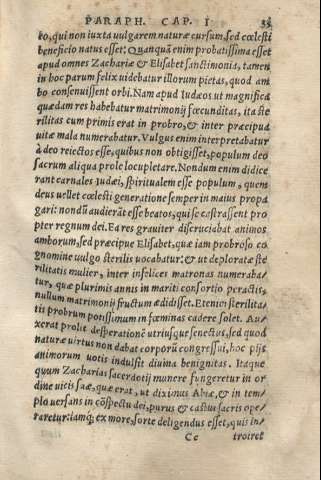 PARAPH. CAP. I 33
ko, qui non iuxta uulgarem naturæ cursum, sed cœlesti
beneficio natus esset. Quanquā enim probatissima esset
apud omnes Zachariæ & Elisabet sanctimonia, tamen
in hoc parum felix uidebatur illorum pietas, quod am
bo consenuissent orbi. Nam apud Iudæos ut magnificā
quædam res habebatur matrimonij fœcunditas, ita ste
rilitas cum primis erat in probro, & inter præcipua
uitæ mala numerabatur. Vulgus enim interpretabatur
à deo reiectos esse, quibus non obtigisset, populum deo
sacrum aliqua prole locupletare. Nondum enim didice
rant carnales Iudæi, spiritualem esse populum, quem
deus uellet cœlesti generatione semper in maius propa
gari: nondū audierāt esse beatos, qui se castrassent pro
pter regnum dei. Ea res grauiter discruciabat animos
amborum, sed præcipue Elisabet, quæ iam probroso co
gnomine uulgo sterilis uocabatur: & ut deploratæ ste
rilitatis mulier, inter infelices matronas numeraba/
tur, quæ plurimis annis in mariti consortio peractis,
nullum matrimonij fructum ædidisset. Etenim sterilita/
tis probrum potissimum in fœminas cadere solet. Au/
xerat prolis desperationē utriusque senectus, sed quod
naturæ uirtus non dabat corporū congressui, hoc pijs
animorum uotis indulsit diuina benignitas. Itaque
quum Zacharias sacerdotij munere fungeretur in or
dine uicis suæ, quæ erat, ut diximus Abiæ, & in tem/
plo uersans in cōspectu dei, purus & castus sacris ope/
raretur: iamq; ex more, sorte deligendus esset, quis in/
Cc troiret